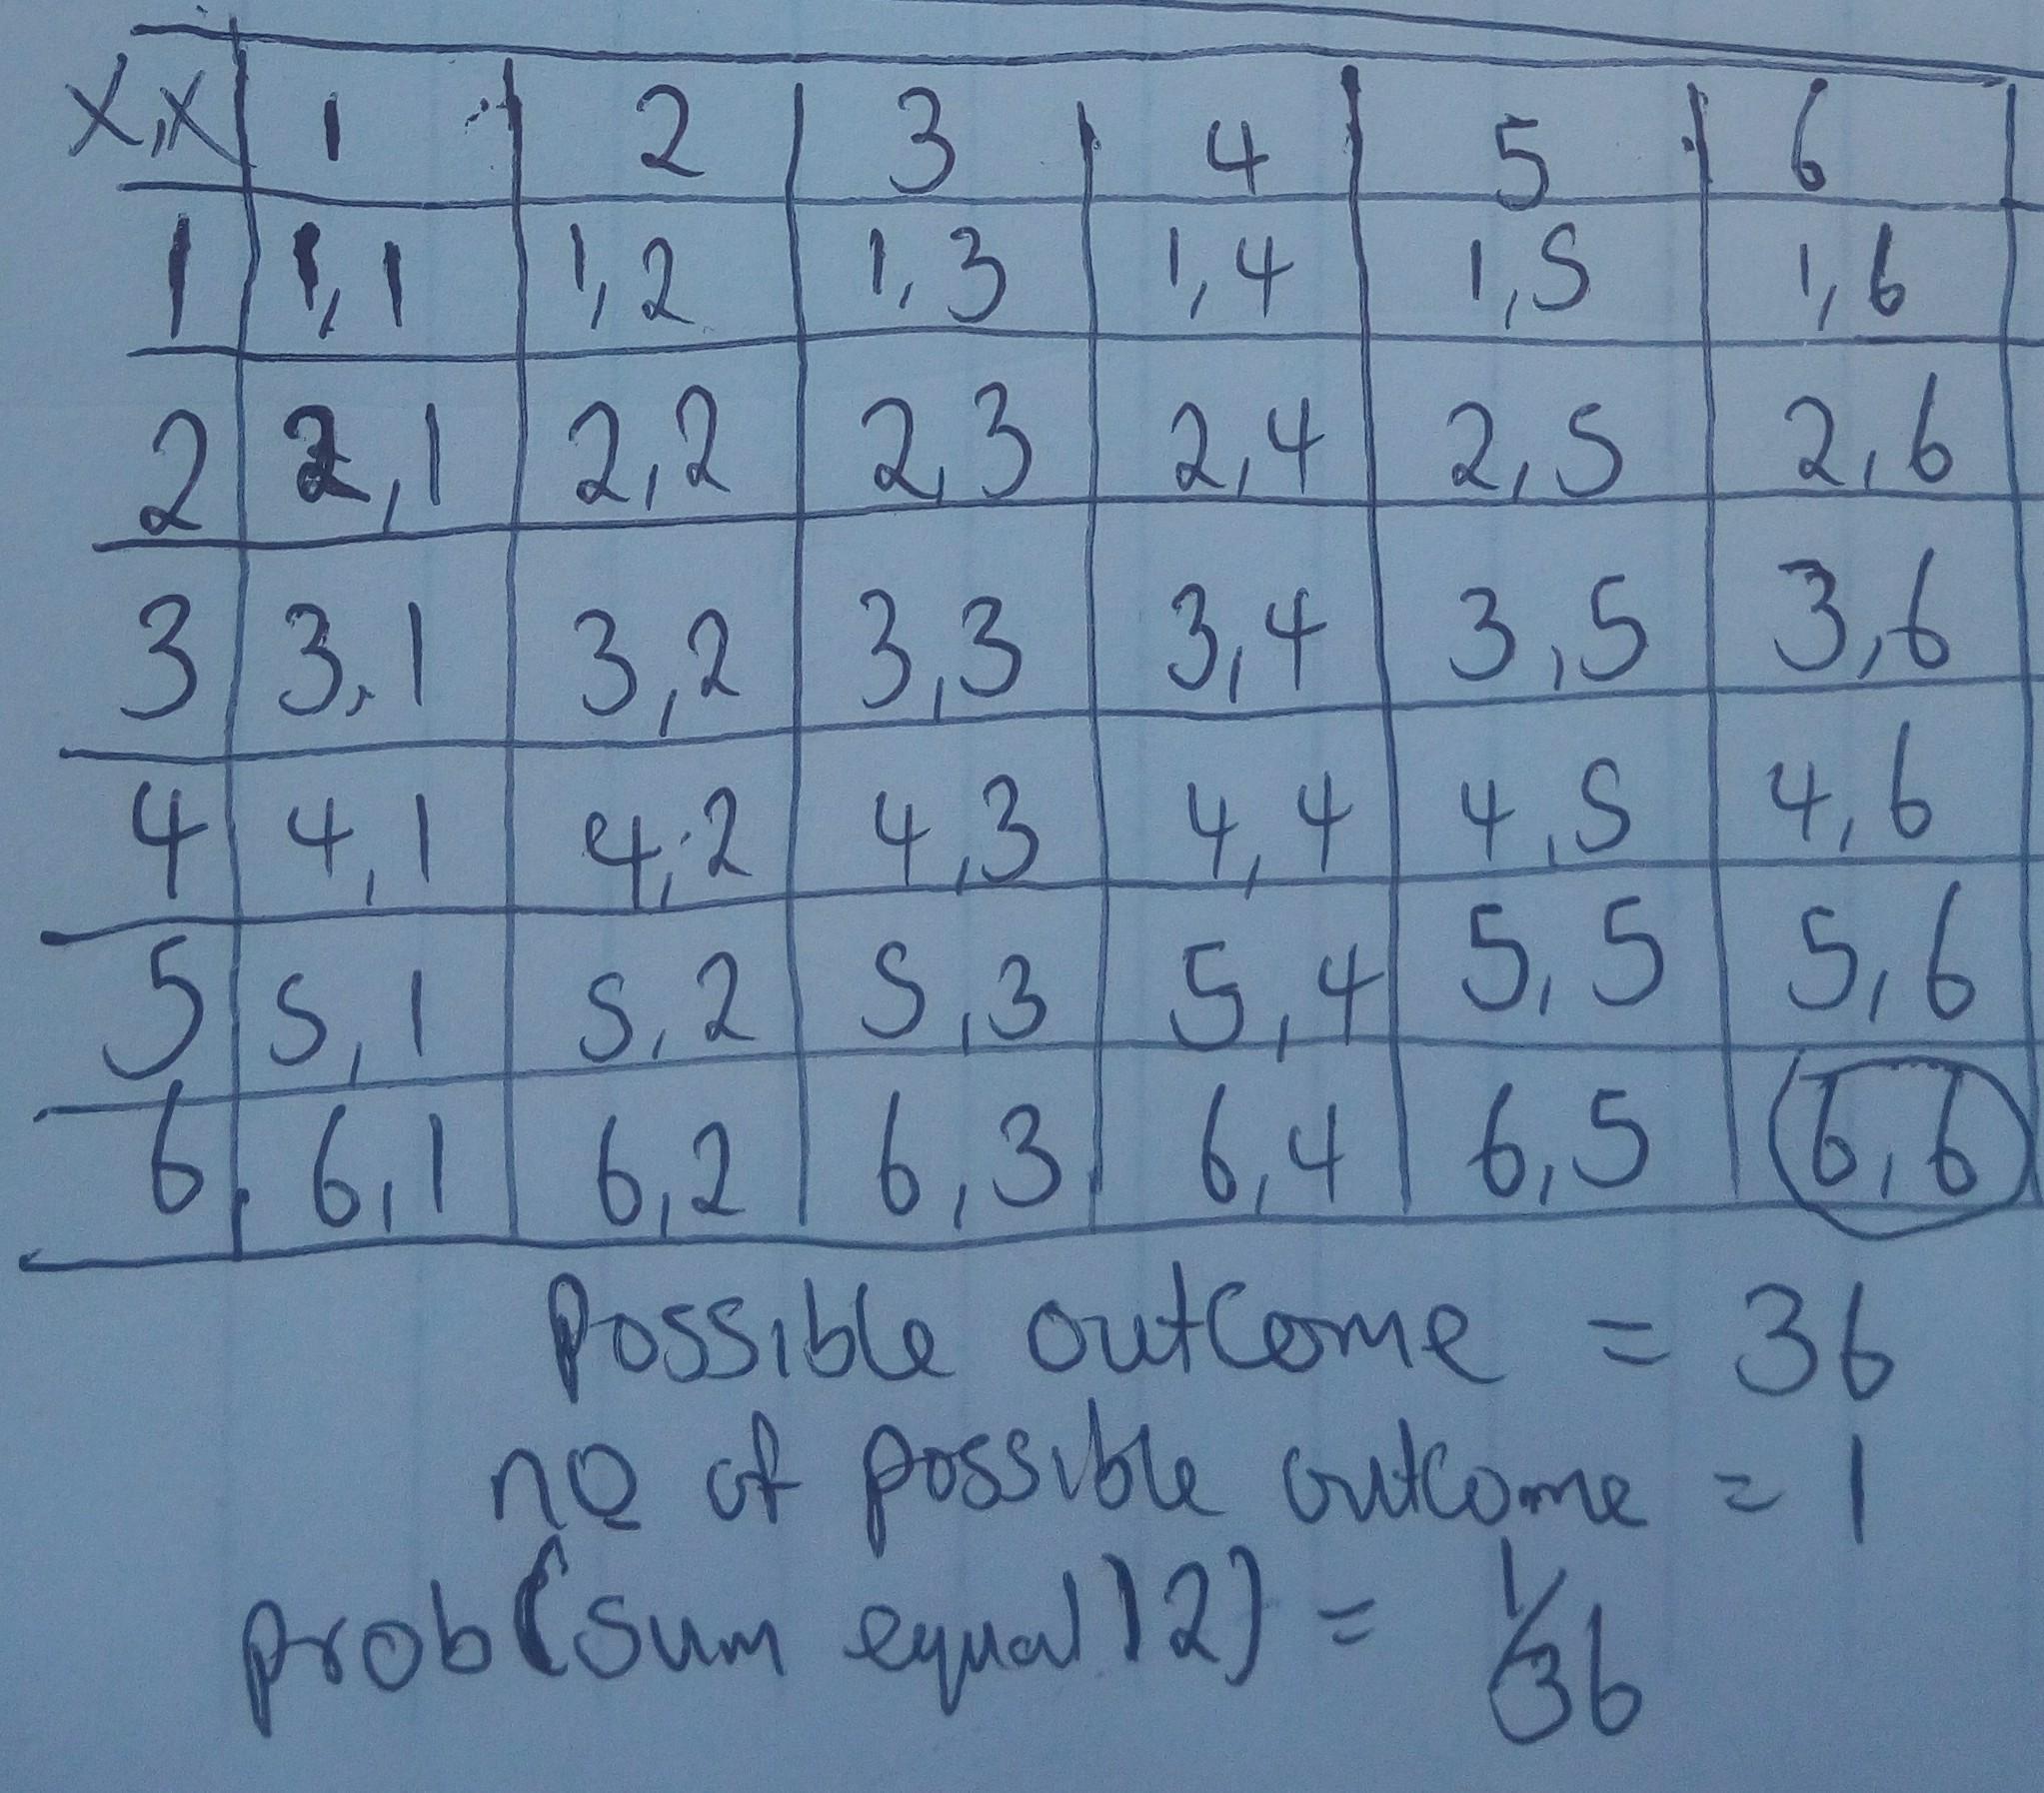 x,x 1 2 3 4 5 6
1 1,1 1,2 1,3 1,4 1,5 1,6
2 2,1 2,2 2,3 2,4 2,5 2,6
3 3,1 3,2 3,3 3,4 3,5 3,6
4 4,1 4,2 4,3 4,4 4,5 4,6
5 5,1 5,2 5,3 5,4 5,5 5,6
6 6,1 6,2 6,3 6,4 6,5 6,6
possible outcome = 36
no of possible outcome = 1
prob(sum equal 12) = 1/36